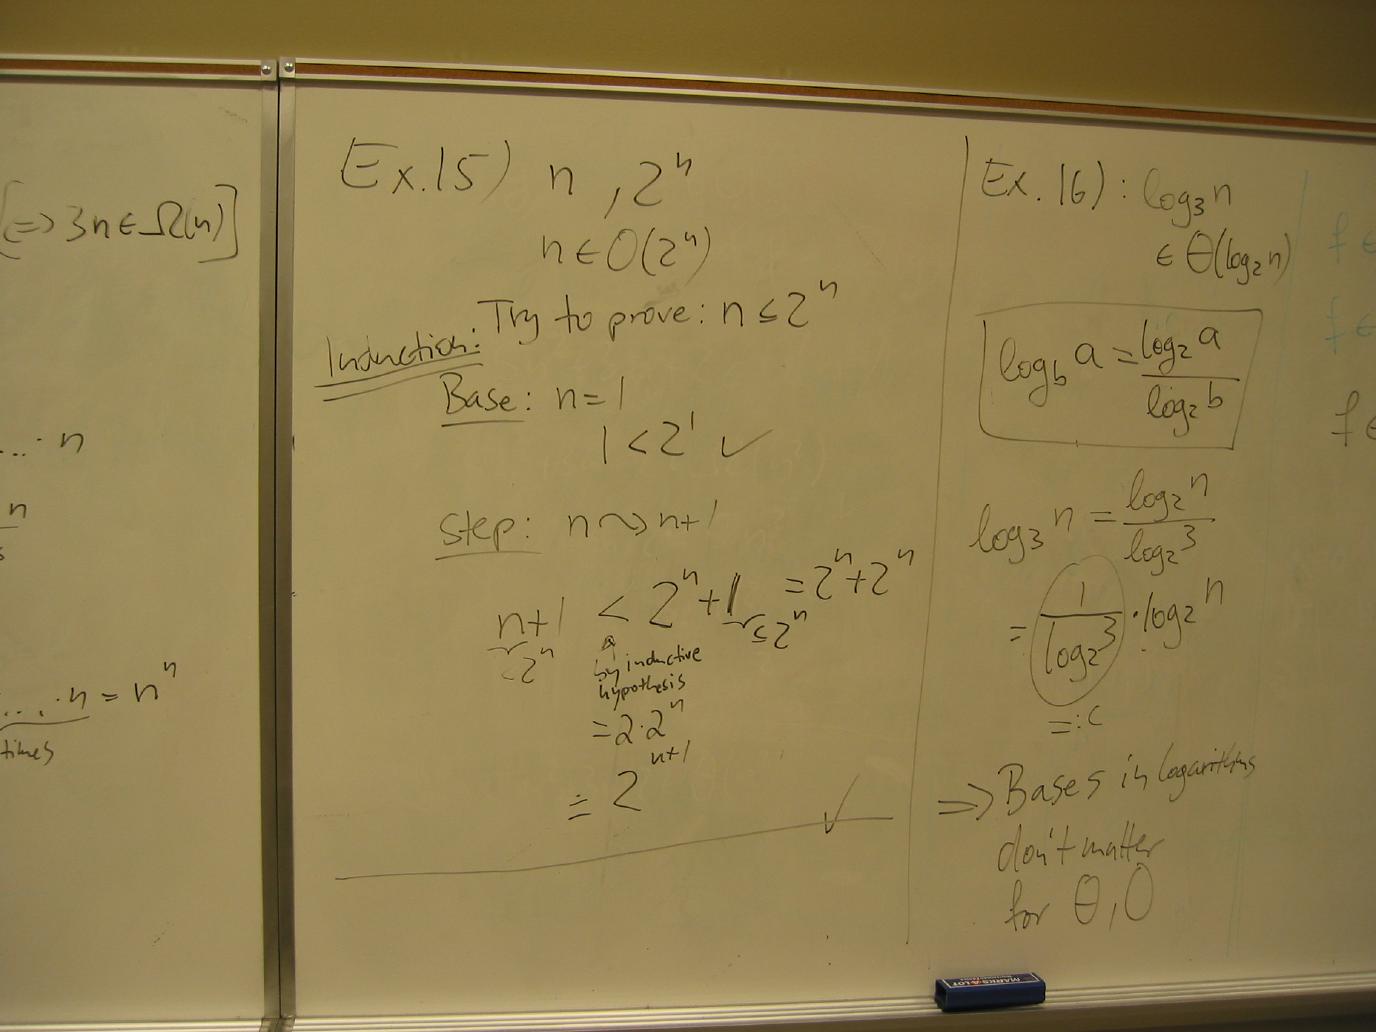 [=> 3n ∈ Ω(n)]
... · n
n
... · n = nⁿ
times
Ex. 15) n , 2ⁿ
n ∈ O(2ⁿ)
Try to prove: n ≤ 2ⁿ
Induction:
Base: n = 1
1 < 2¹ ✓
step: n ⤳ n+1
n+1 < 2ⁿ + 1 = 2ⁿ + 2ⁿ
<2ⁿ ≤2ⁿ
by inductive
hypothesis
= 2·2ⁿ
= 2ⁿ⁺¹ ✓
Ex. 16) : log₃ n
∈ Θ(log₂ n)
log_b a = log₂ a / log₂ b
log₃ n = log₂ n / log₂ 3
= 1 / log₂ 3 · log₂ n
=: c
=> Bases in logarithms
don't matter
for Θ, O
f ∈
f ∈
f ∈
MARKS-A-LOT